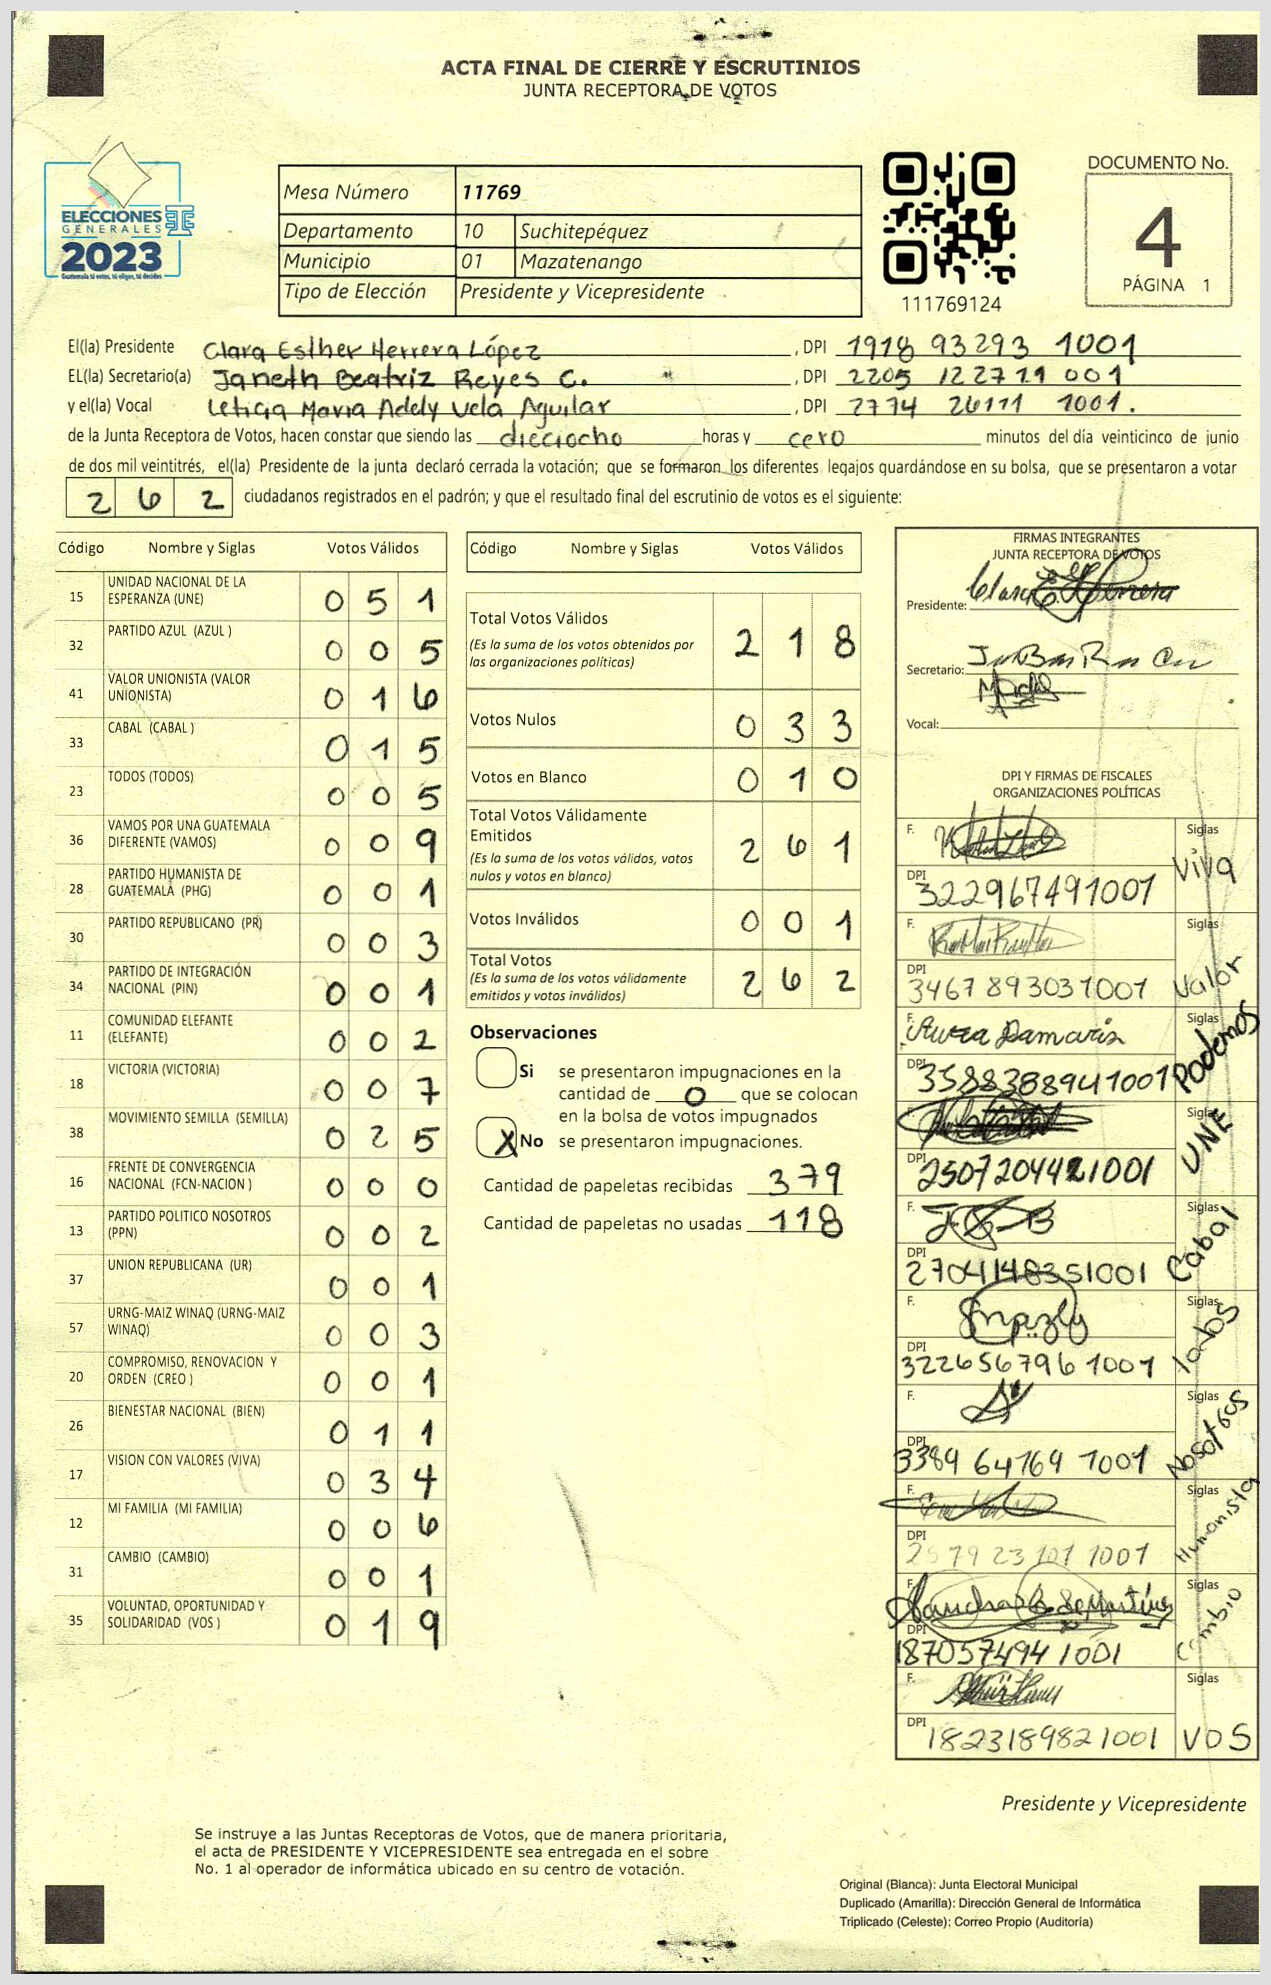 ACTA FINAL DE CIERRE Y ESCRUTINIOS
JUNTA RECEPTORA DE VOTOS
ELECCIONES
GENERALES
2023
Guatemala tú votes, tú eliges, tú decides
Mesa Número 11769
Departamento 10 Suchitepéquez
Municipio 01 Mazatenango
Tipo de Elección Presidente y Vicepresidente
111769124
DOCUMENTO No.
4
PÁGINA 1
El(la) Presidente Clara Esther Herrera López, DPI 1918 93293 1001
EL(la) Secretario(a) Janeth Beatriz Reyes C., DPI 2205 12271 1001
y el(la) Vocal Leticia Maria Adely Vela Aguilar, DPI 2774 26111 1001.
de la Junta Receptora de Votos, hacen constar que siendo las dieciocho horas y cero minutos del día veinticinco de junio
de dos mil veintitrés, el(la) Presidente de la junta declaró cerrada la votación; que se formaron los diferentes legajos quardándose en su bolsa, que se presentaron a votar
262 ciudadanos registrados en el padrón; y que el resultado final del escrutinio de votos es el siguiente:
Código Nombre y Siglas Votos Válidos
15 UNIDAD NACIONAL DE LA ESPERANZA (UNE) 051
32 PARTIDO AZUL (AZUL ) 005
41 VALOR UNIONISTA (VALOR UNIONISTA) 016
33 CABAL (CABAL ) 015
23 TODOS (TODOS) 005
36 VAMOS POR UNA GUATEMALA DIFERENTE (VAMOS) 009
28 PARTIDO HUMANISTA DE GUATEMALA (PHG) 001
30 PARTIDO REPUBLICANO (PR) 003
34 PARTIDO DE INTEGRACIÓN NACIONAL (PIN) 001
11 COMUNIDAD ELEFANTE (ELEFANTE) 002
18 VICTORIA (VICTORIA) 007
38 MOVIMIENTO SEMILLA (SEMILLA) 025
16 FRENTE DE CONVERGENCIA NACIONAL (FCN-NACION ) 000
13 PARTIDO POLITICO NOSOTROS (PPN) 002
37 UNION REPUBLICANA (UR) 001
57 URNG-MAIZ WINAQ (URNG-MAIZ WINAQ) 003
20 COMPROMISO, RENOVACION Y ORDEN (CREO ) 001
26 BIENESTAR NACIONAL (BIEN) 011
17 VISION CON VALORES (VIVA) 034
12 MI FAMILIA (MI FAMILIA) 006
31 CAMBIO (CAMBIO) 001
35 VOLUNTAD, OPORTUNIDAD Y SOLIDARIDAD (VOS ) 019
Código Nombre y Siglas Votos Válidos
Total Votos Válidos 218
(Es la suma de los votos obtenidos por
las organizaciones políticas)
Votos Nulos 033
Votos en Blanco 010
Total Votos Válidamente
Emitidos 261
(Es la suma de los votos válidos, votos
nulos y votos en blanco)
Votos Inválidos 001
Total Votos 262
(Es la suma de los votos válidamente
emitidos y votos inválidos)
Observaciones
Si se presentaron impugnaciones en la
cantidad de 0 que se colocan
en la bolsa de votos impugnados
X No se presentaron impugnaciones.
Cantidad de papeletas recibidas 379
Cantidad de papeletas no usadas 118
FIRMAS INTEGRANTES
JUNTA RECEPTORA DE VOTOS
Presidente: Clara E. Herrera
Secretario:
Vocal:
DPI Y FIRMAS DE FISCALES
ORGANIZACIONES POLÍTICAS
F. Siglas
DPI 322967491001 Viva
F. Siglas
DPI 3467893031001 Valor
F. Aurea Damaris Siglas
DPI 3588388941001 Podemos
Siglas
DPI 2507204421001 UNE
F. Siglas
DPI 2704148351001 Cabal
F. Siglas
DPI 3226567961001 Todos
F. Siglas
DPI 3389 64769 1001 Nosotros
F. Siglas
DPI 2579 23101 1001 Humanista
F. Siglas
DPI 1870574941001 Cambio
F. Siglas
DPI 1823189821001 VOS
Presidente y Vicepresidente
Se instruye a las Juntas Receptoras de Votos, que de manera prioritaria,
el acta de PRESIDENTE Y VICEPRESIDENTE sea entregada en el sobre
No. 1 al operador de informática ubicado en su centro de votación.
Original (Blanca): Junta Electoral Municipal
Duplicado (Amarilla): Dirección General de Informática
Triplicado (Celeste): Correo Propio (Auditoría)